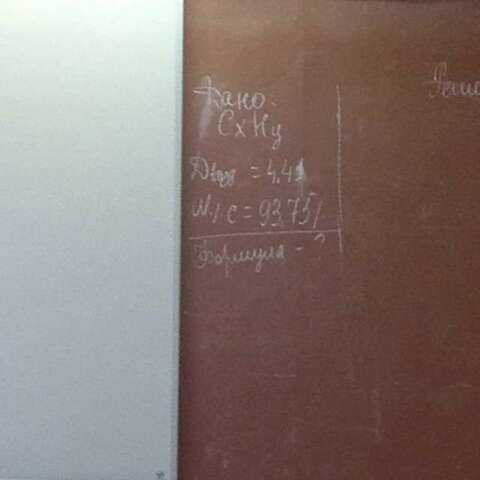 Дано:
CxHy
Dвоз = 4.41
W% C = 93.75%
Формула - ?